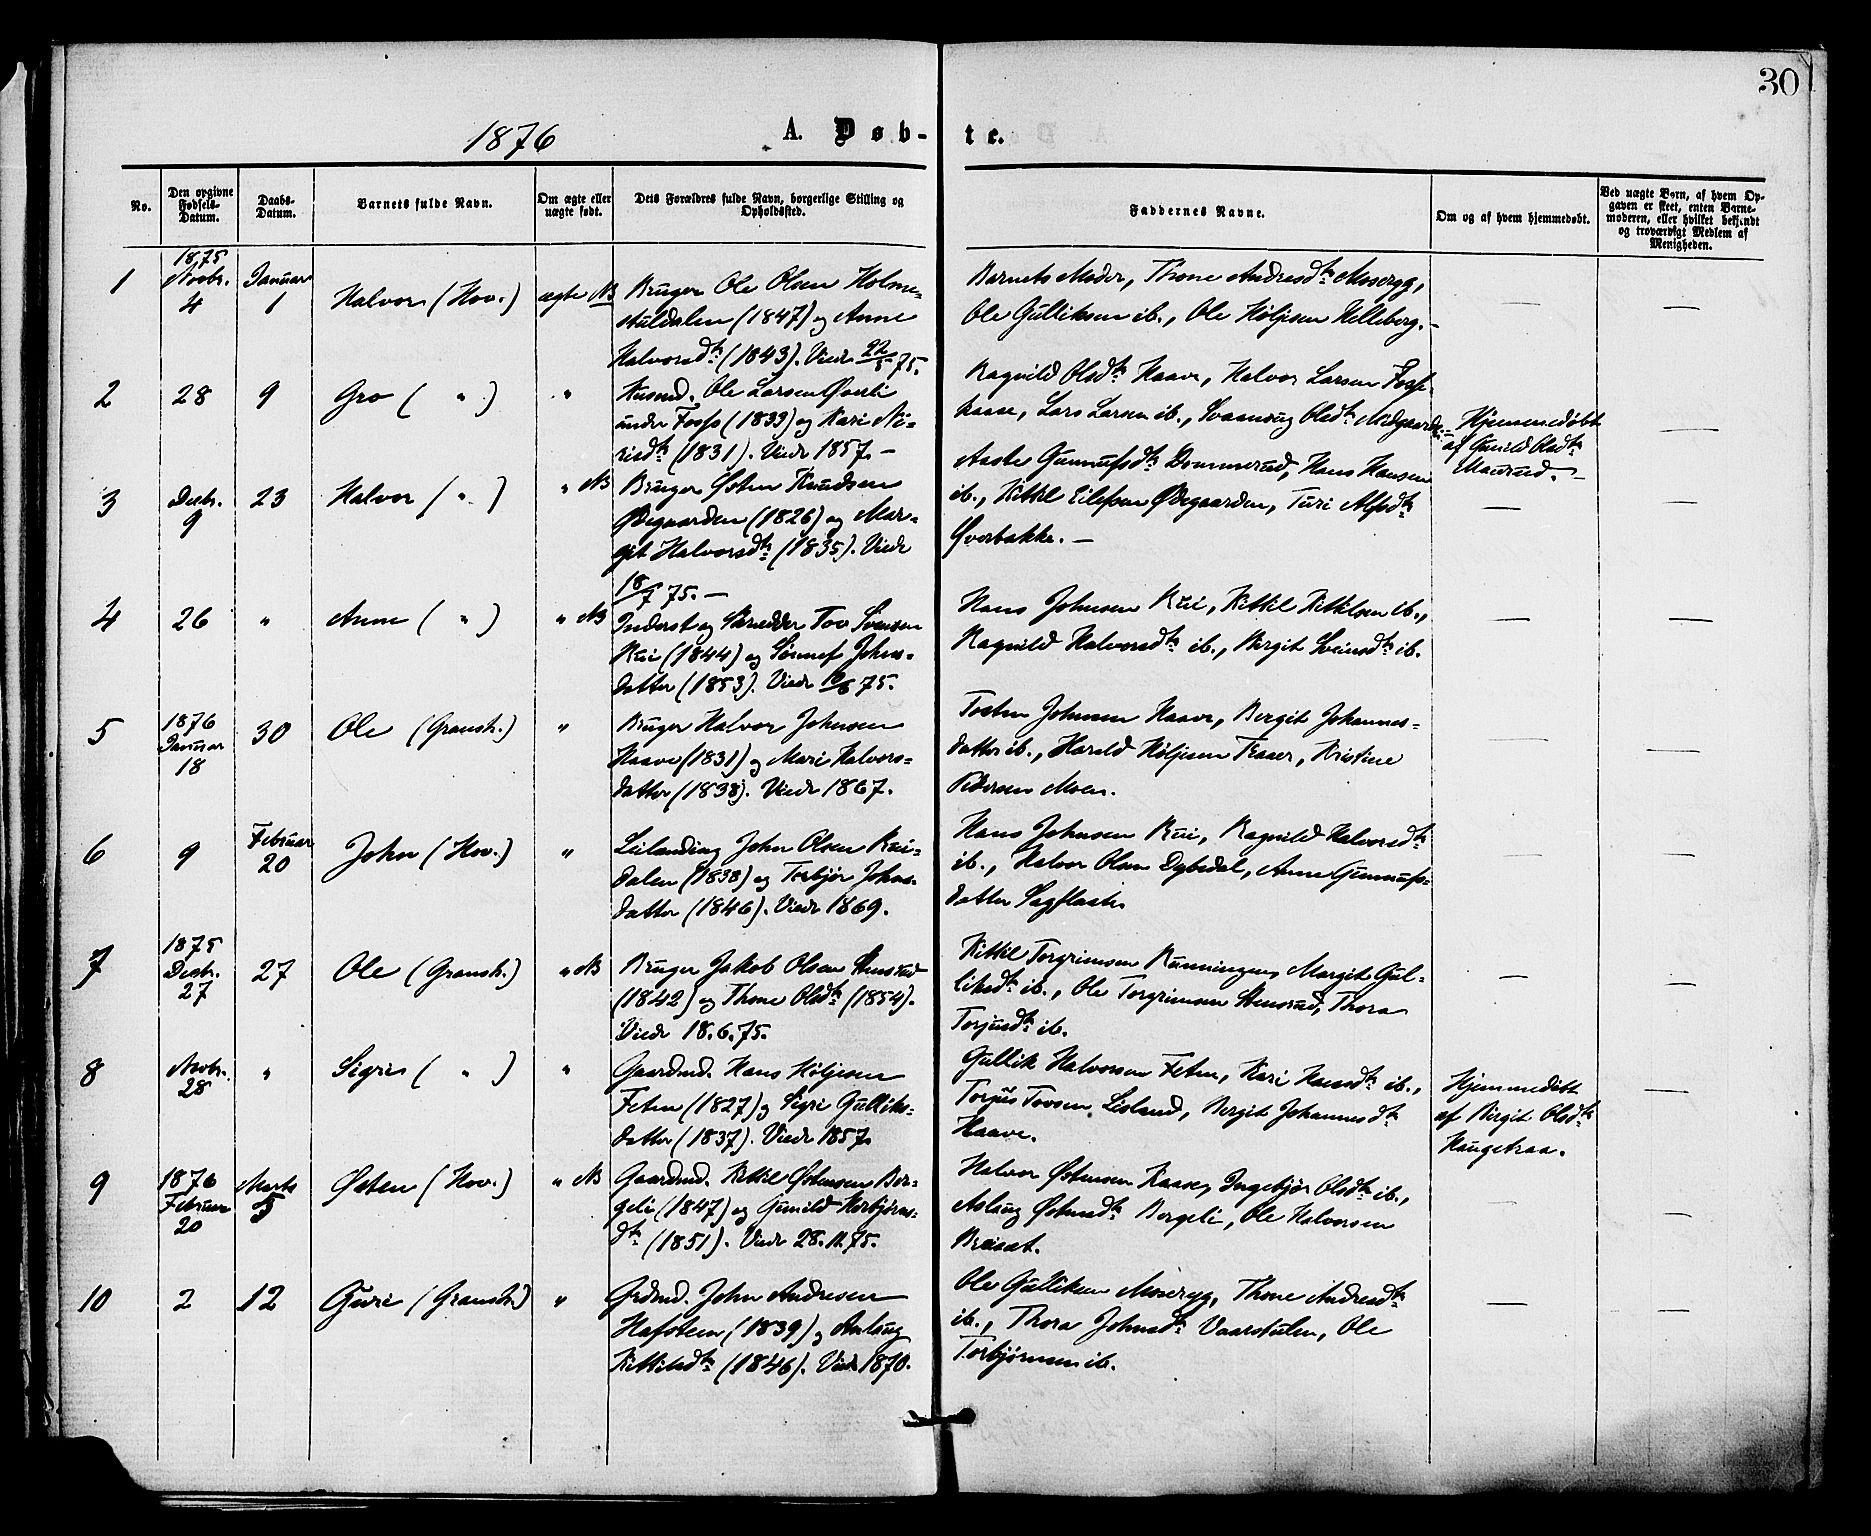 30
1876
A. Døb-te.
No.
Den opgivne Fødsels-Datum.
Daabs-Datum.
Barnets fulde Navn.
Om ægte eller uægte født.
Dets Forældres fulde Navn, borgerlige Stilling og Opholdssted.
Faddernes Navne.
Om og af hvem hjemmedøbt.
Ved uægte Børn, af hvem Opgaven er skeet, enten Barnemoderen, eller hvilket bekjendt og troværdigt Medlem af Menigheden.
1
1875 Novbr. 4
Januar 1
Halvor (Hov.)
ægte NB
Bruger Ole Olsen Holme-
stuldalen (1847) og Anne
Halvorsdtr (1843). Viede 22/5 75.
Barnets Moder, Thone Andresdtr Moseryg,
Ole Gulliksen ib., Ole Høljesen Helleberg. -
2
28
9
Gro ( " )
"
Husmd. Ole Larsen Øverli
under Foss (1833) og Kari Ni-
risdtr (1831). Viede 1857. -
Ragnild Olsdtr Haave, Halvor Larsen Fosse-
haase, Lars Larsen ib., Svaanaug Olsdtr Midgaarden
Hjemmedøbt
af Gunild Olsdtr
Maurud. -
3
Decbr. 9
23
Halvor ( " )
" NB
Bruger Østen Knudsen
Ødegaarden (1826) og Mar-
git Halvorsdtr (1835). Viede
18/7 75. -
Aaste Gunnufsdtr Dommerud, Hans Hansen
ib., Kittil Eilefsen Ødegaarden, Turi Alfsdtr
Øverbakke. -
4
26
"
Anne ( " )
" NB
Inderst og Skrædder Tov Svensen
Rui (1844) og Sønnef Johns-
datter (1853). Viede 75.
Hans Johnsen Rui, Kittil Kittilsen ib.,
Ragnild Halvorsdtr ib., Birgit Sveinsdtr ib.
5
1876 Januar 18
30
Ole (Gransh.)
"
Bruger Halvor Johnsen
Haave (1831) og Mari Halvors-
datter (1838). Viede 1867.
Tosten Johnsen Haave, Bergit Johannes-
datter ib., Harald Høljesen Traaer, Kristine
Pedersen Moen.
6
9
Februar 20
John (Hov.)
"
Leilænding John Olsen Rui-
dalen (1838) og Torbjør Johns-
datter (1846). Viede 1869.
Hans Johnsen Rui, Ragnild Halvorsdtr
ib., Halvor Olsen Dybedal, Anne Gunnufs-
datter Sagflaate
7
1875 Decbr. 27
27
Ole (Gransh.)
" NB
Bruger Jakob Olsen Stensrud
(1842) og Thone Olsdtr (1854).
Viede 18.6.75.
Kittil Torgrimsen Runningen, Margit Gul-
liksdtr ib., Ole Torgrimsen Stensrud, Thora
Torjusdtr ib.
8
Novbr. 28
"
Sigri ( " )
"
Gaardmd. Hans Høljesen
Feten (1827) og Sigri Gulliks-
datter (1837). Viede 1857.
Gullik Halvorsen Feten, Kari Hansdtr ib.,
Torjus Tovsen Lisland, Bergit Johannesdtr
Haave.
Hjemmedøbt
af Birgit Olsdtr
Haugetraa.
9
1876 Februar 20
Marts 5
Østen (Hov.)
" NB
Gaardmd. Kittil Østensen Ber-
geli (1847) og Gunild Herbjørns-
dtr (1851). Viede 28.11.75.
Halvor Østensen Kaase, Ingebjør Olsdtr ib.,
Aslaug Østensdtr Bergeli, Ole Halvorsen
Breisæt.
10
2
12
Guri (Gransh.)
"
Grdmd. John Andresen
Hafsteen (1839) og Anlaug
Kittilsdtr (1846). Viede 1870.
Ole Gulliksen Moseryg, Thone Andresdtr
ib., Thora Johnsdtr Vaarstulen, Ole
Torbjørnsen ib.